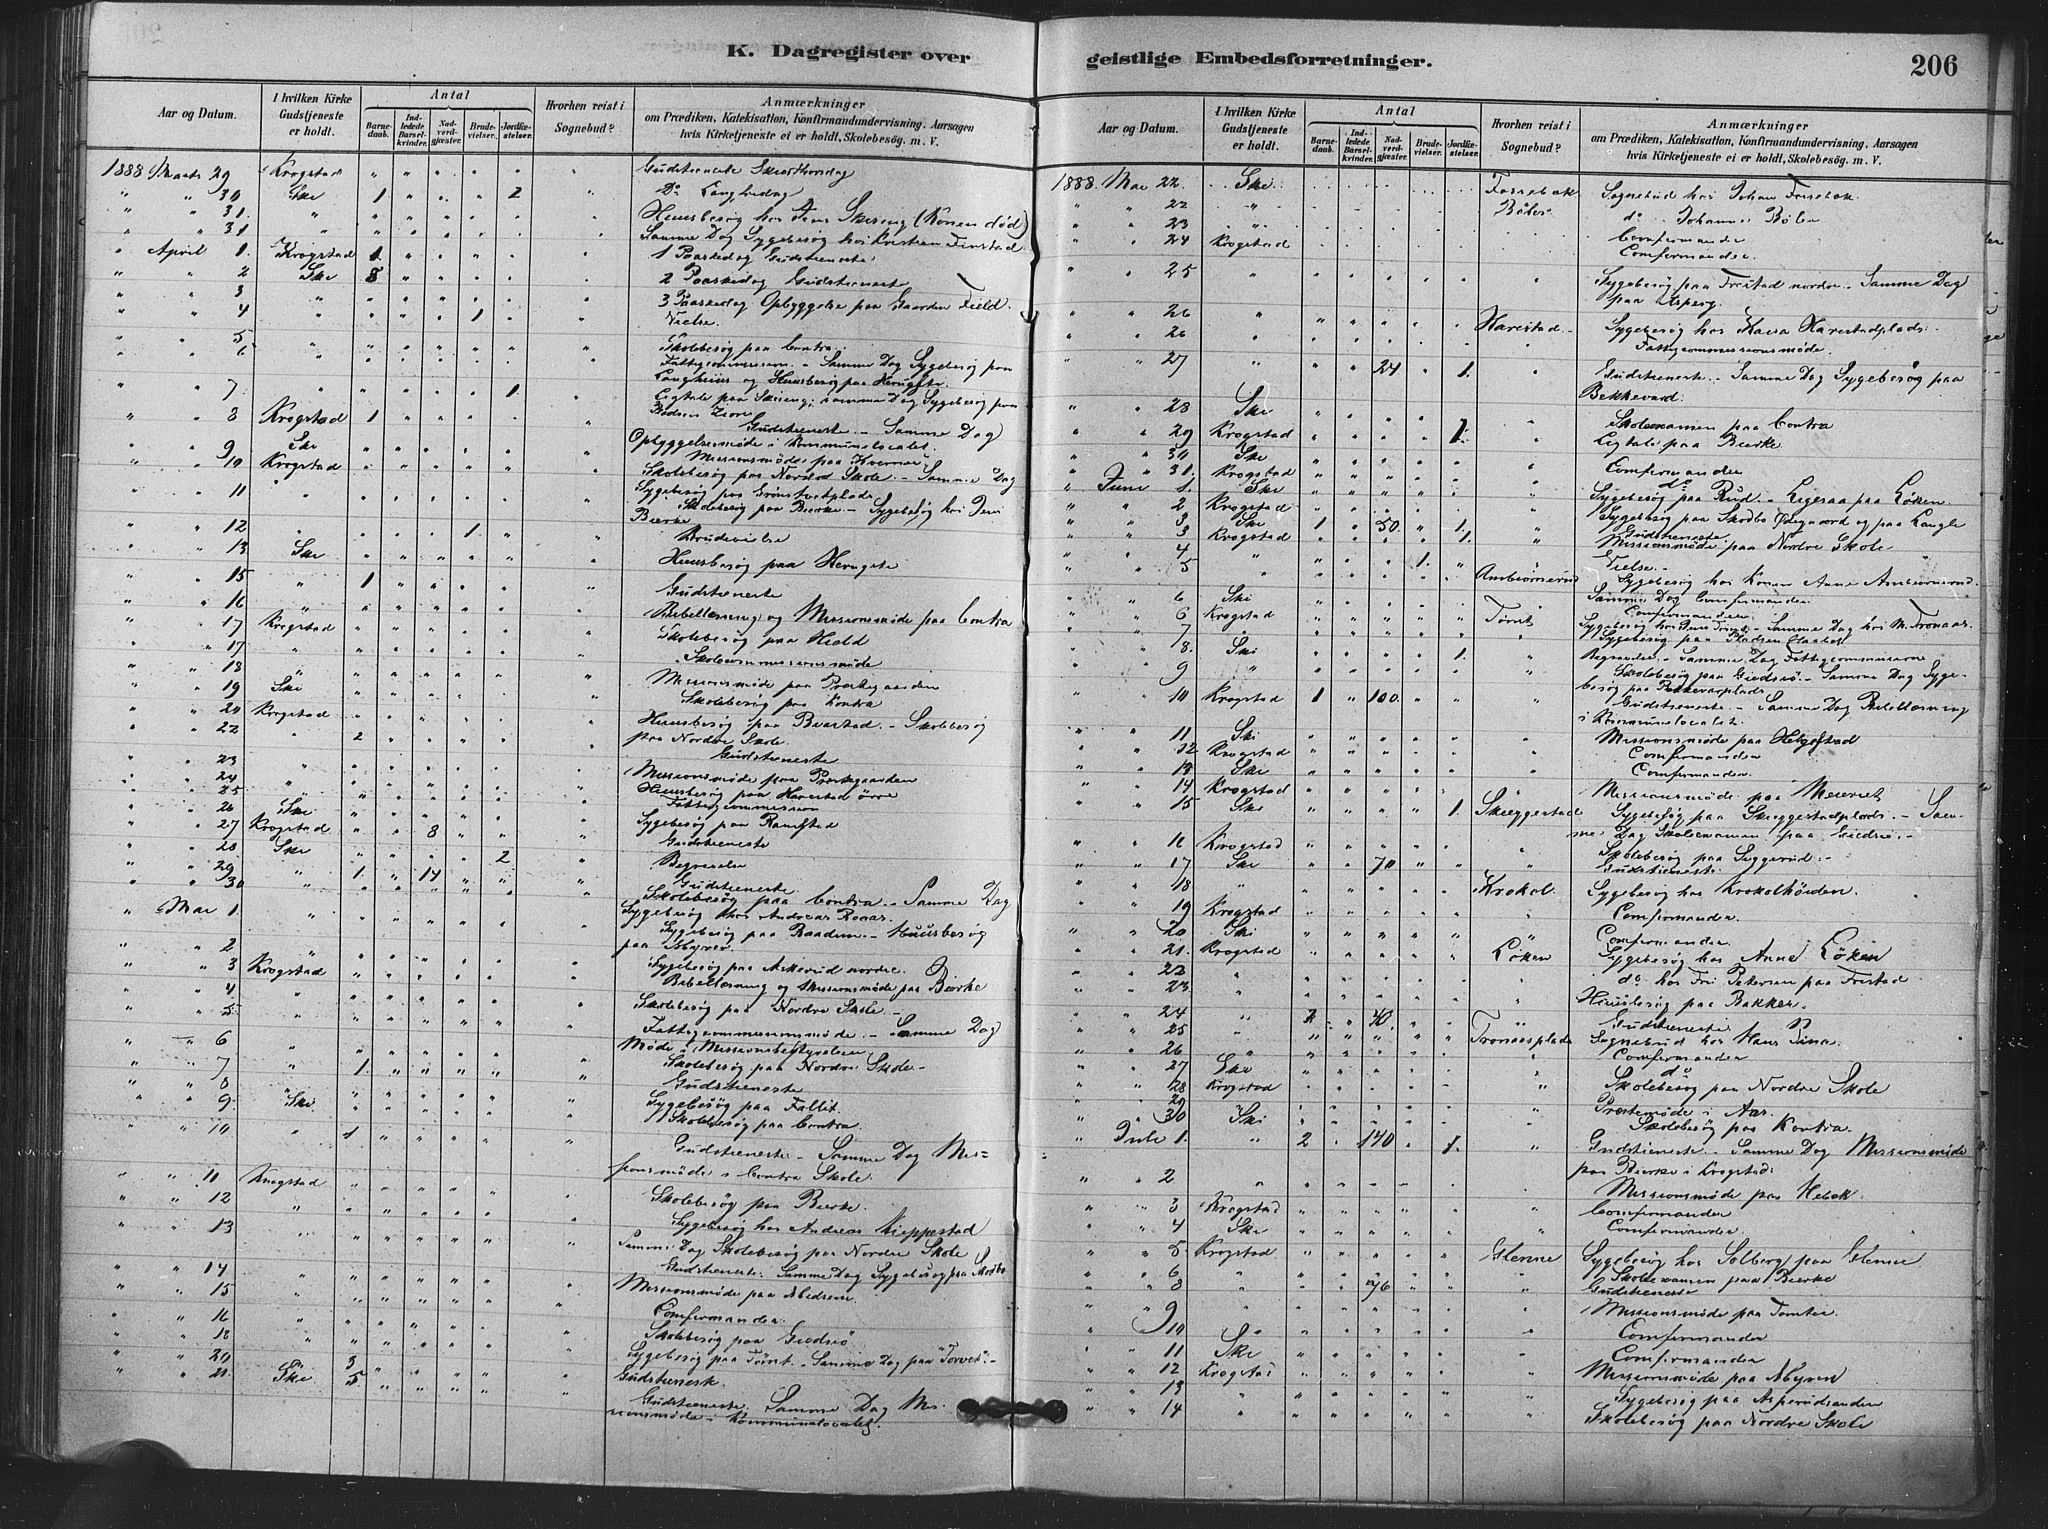 K. Dagregister over geistlige Embedsforretninger.
206
Aar og Datum.
I hvilken Kirke Gudstjeneste er holdt.
Antal
Barnedaab.
Indledede Barselkvinder.
Nadverdgjæster.
Brudevielser.
Jordfæstelser.
Hvorhen reist i Sognebud?
Anmærkninger
om Prædiken, Katekisation, Konfirmandundervisning, Aarsagen
hvis Kirketjeneste ei er holdt, Skolebesøg. m. V.
1888 Marts 29 Krogstad " " " " " Gudstieneste Skiærthorsdag
" " 30 Ski 1 " " " 2 " Do Langfredag
" " 31. " Huusbesøg hos Jens Skiseng (Konen død)
" " 31 Samme Dag Sygebesøg hos Kristian Finstad
" April 1. Krogstad 1. 1 Paaskedag Gudstieneste
" " 2 Ski 8 2 Paaskedag Gudstieneste
" " 3 " 3 Paaskedag Opbyggelse paa Gaarden Field
" " 4 " 1 Vielse
" " 5 " Skolebesøg paa Contra
" " 6 " Fattigcommission. Samme Dag Sygebesøg paa
Langhuus og Huusbesøg paa
" " 7 " 1. Ligtale paa Skiseng, samme Dag Sygebesøg paa
Pladsen Zion
" " 8 Krogstad 1 Gudstieneste – Samme Dag
Opbyggelsesmøde i Kommunelocalet
" " 9 Ski Missionsmøde paa Kverner
" " 10 Krogstad Skolebesøg paa Nordre Skole – Samme Dag
Sygebesøg paa
" " 11 " Skolebesøg paa Bierke – Sygebesøg hos
Bierke
" " 12 " 1. Brudevielse
" " 13 Ski Huusbesøg paa
" " 15 " 1 Gudstieneste
" " 16 " Bibellæsning og Missionsmøde paa Contra
" " 17 Krogstad Skolebesøg paa Hiold
" " 17 " Skolecommissionsmøde
" " 18 " Missionsmøde paa Præstegaarden
" " 19 Ski Skolebesøg paa Kontra
" " 20 Krogstad Huusbesøg paa – Skolebesøg
paa Nordre Skole.
" " 22 " 2 Gudstieneste
" " 23 " Missionsmøde paa Præstegaarden
" " 24 " Huusbesøg paa Harestad øvre
" " 25 " Fattigcommission
" " 26 Ski Sygebesøg paa Ramstad
" " 27 Krogstad 8 Gudstieneste
" " 28 Ski 2 Begravelse
" " 29 " 1. 14 Gudstieneste
" " 30 " Skolebesøg paa Contra – Samme Dag
Sygebesøg hos Andreas
" Mai 1. " Sygebesøg paa Raaden – Huusbesøg
paa Myrer
" " 2 " Sygebesøg paa Askerud nordre.
" " 3 Krogstad Bibellæsning og Missionsmøde paa Bierke
" " 4 " Skolebesøg paa Nordre Skole –
" " 5 " Fattigcommissionsmøde – Samme Dag
Møde i Missionsbestyrelsen
" " 6 " 1. Skolebesøg paa Nordre Skole –
" " 7 " Gudstieneste
" " 8 " Sygebesøg paa Fallit.
" " 9 Ski Skolebesøg paa Contra
" " 10 " 1 Gudstieneste – Samme Dag Mis=
sionsmøde i Contra Skole.
" " 11 Krogstad Skolebesøg paa Bierke.
" " 12 " Sygebesøg hos Andreas Kieppestad
Samme Dag Skolebesøg paa Nordre Skole
" " 13 " Gudstieneste. Samme Dag Sygebesøg paa Skodbo
" " 14 " Missionsmøde paa
" " 15 " Comfermander.
" " 16 " Skolebesøg paa Giedsiø
" " 18 " Sygebesøg paa Tømt – Samme Dag paa "Torvet" –
" " 20 " 3 Gudstieneste
" " 21 Ski 5 Gudstieneste Samme Dag Mis
sionsmøde i Kommunelocalet.
Aar og Datum.
I hvilken Kirke Gudstjeneste er holdt.
Antal
Barnedaab.
Indledede Barselkvinder.
Nadverdgjæster.
Brudevielser.
Jordfæstelser.
Hvorhen reist i Sognebud?
Anmærkninger
om Prædiken, Katekisation, Konfirmandundervisning, Aarsagen
hvis Kirketjeneste ei er holdt, Skolebesøg m. V.
1888. Mai 22. Ski Fossebæk Sognebud hos Johan
" " 22 " Bøler do Johanne Bøler
" " 23 " Comfermander
" " 24 Krogstad Comfermander.
" " 25 " Sygebesøg paa Fristad nordre – Samme Dag
paa Asperg.
" " 26 " Harestad Sygebesøg hos Harestadplads
" " 26 " Fattigcommissionsmøde.
" " 27 " 24 1. Gudstieneste – Samme Dag Sygebesøg paa
Bekkevard.
" " 28 Ski Skoleexamen paa Contra
" " 29 Krogstad 1. Ligtale paa Bierke
" " 30 Ski Comfermander
" " 31. Krogstad do
" Juni 1. Ski Sygebesøg paa Rud – Ligesaa paa Løken
" " 2 Krogstad Sygebesøg paa Skodbo Ødegaard og paa Langli
" " 3 Ski 1 50. 1. Gudstieneste
" " 3 Krogstad 1. Missionsmøde paa Nordre Skole
" " 4 " 1. Vielse –
" " 5 " Ambiørnsrud Sygebesøg hos Konen Anne Ambiørnsrud
Samme Dag Comfermander
" " 6 Ski Comfermander
" " 6 Krogstad Tømt Sygebesøg hos Tømt – Samme Dag hos
" " 7 " Sygebesøg paa Pladsen
" " 8. Ski 1. Begravelse – Samme Dag Fattigcommission
" " 9 " Skolebesøg paa Giedsiø – Samme Dag Syge-
besøg paa
" " 10 Krogstad 1 100. Gudstieneste – Samme Dag Bibellæsning
i Kommunelocalet.
" " 11 Ski Missionsmøde paa Helgestad
" " 12 Krogstad Comfermander
" " 13 Ski Comfermander.
" " 14 Krogstad Missionsmøde paa Meieriet
" " 15 Ski 1 Skieggestad Sygebesøg paa Skieggestadplads – Sam-
me Dag Skoleexamen paa Giedsiø –
" " 16 Krogstad Skolebesøg paa Siggerud –
" " 17 Ski 70 Gudstieneste
" " 18 " Krokol Sygebesøg hos
" " 19 Krogstad Comfermander.
" " 20 Ski Comfermander
" " 21. Krogstad Løken Sygebesøg hos Anne Løken
" " 22 " do hos Fru Petersen paa Fristad
" " 23 " Huusbesøg paa Bakker.
" " 24 " 2 40. Gudstieneste
" " 25 " Tronaasplads Sognebud hos Hans
" " 26 " Comfermander
" " 27 Ski do
" " 28 Krogstad Skolebesøg paa Nordre Skole
" " 29 Præstemøde i Aas.
" " 30 Ski Skolebesøg paa Kontra.
" Juli 1. " 2 140 1. Gudstieneste – Samme Dag Missionsmøde
paa Bierke i Krogstad.
" " 2 " Missionsmøde paa Hebæk
" " 3 Krogstad Comfermander
" " 4 Ski Comfermander
" " 5 Krogstad Glenne Sygebesøg hos Solberg paa Glenne
" " 6 " Skoleexamen paa Bierke
" " 8 " 76 Gudstieneste
" " 9 " Missionsmøde paa Tomter
" " 10 " Comfermander
" " 11 Ski Comfermander
" " 12 Krogstad Missionsmøde paa Myren
" " 13 " Sygebesøg paa
" " 14 " Skolebesøg paa Nordre Skole